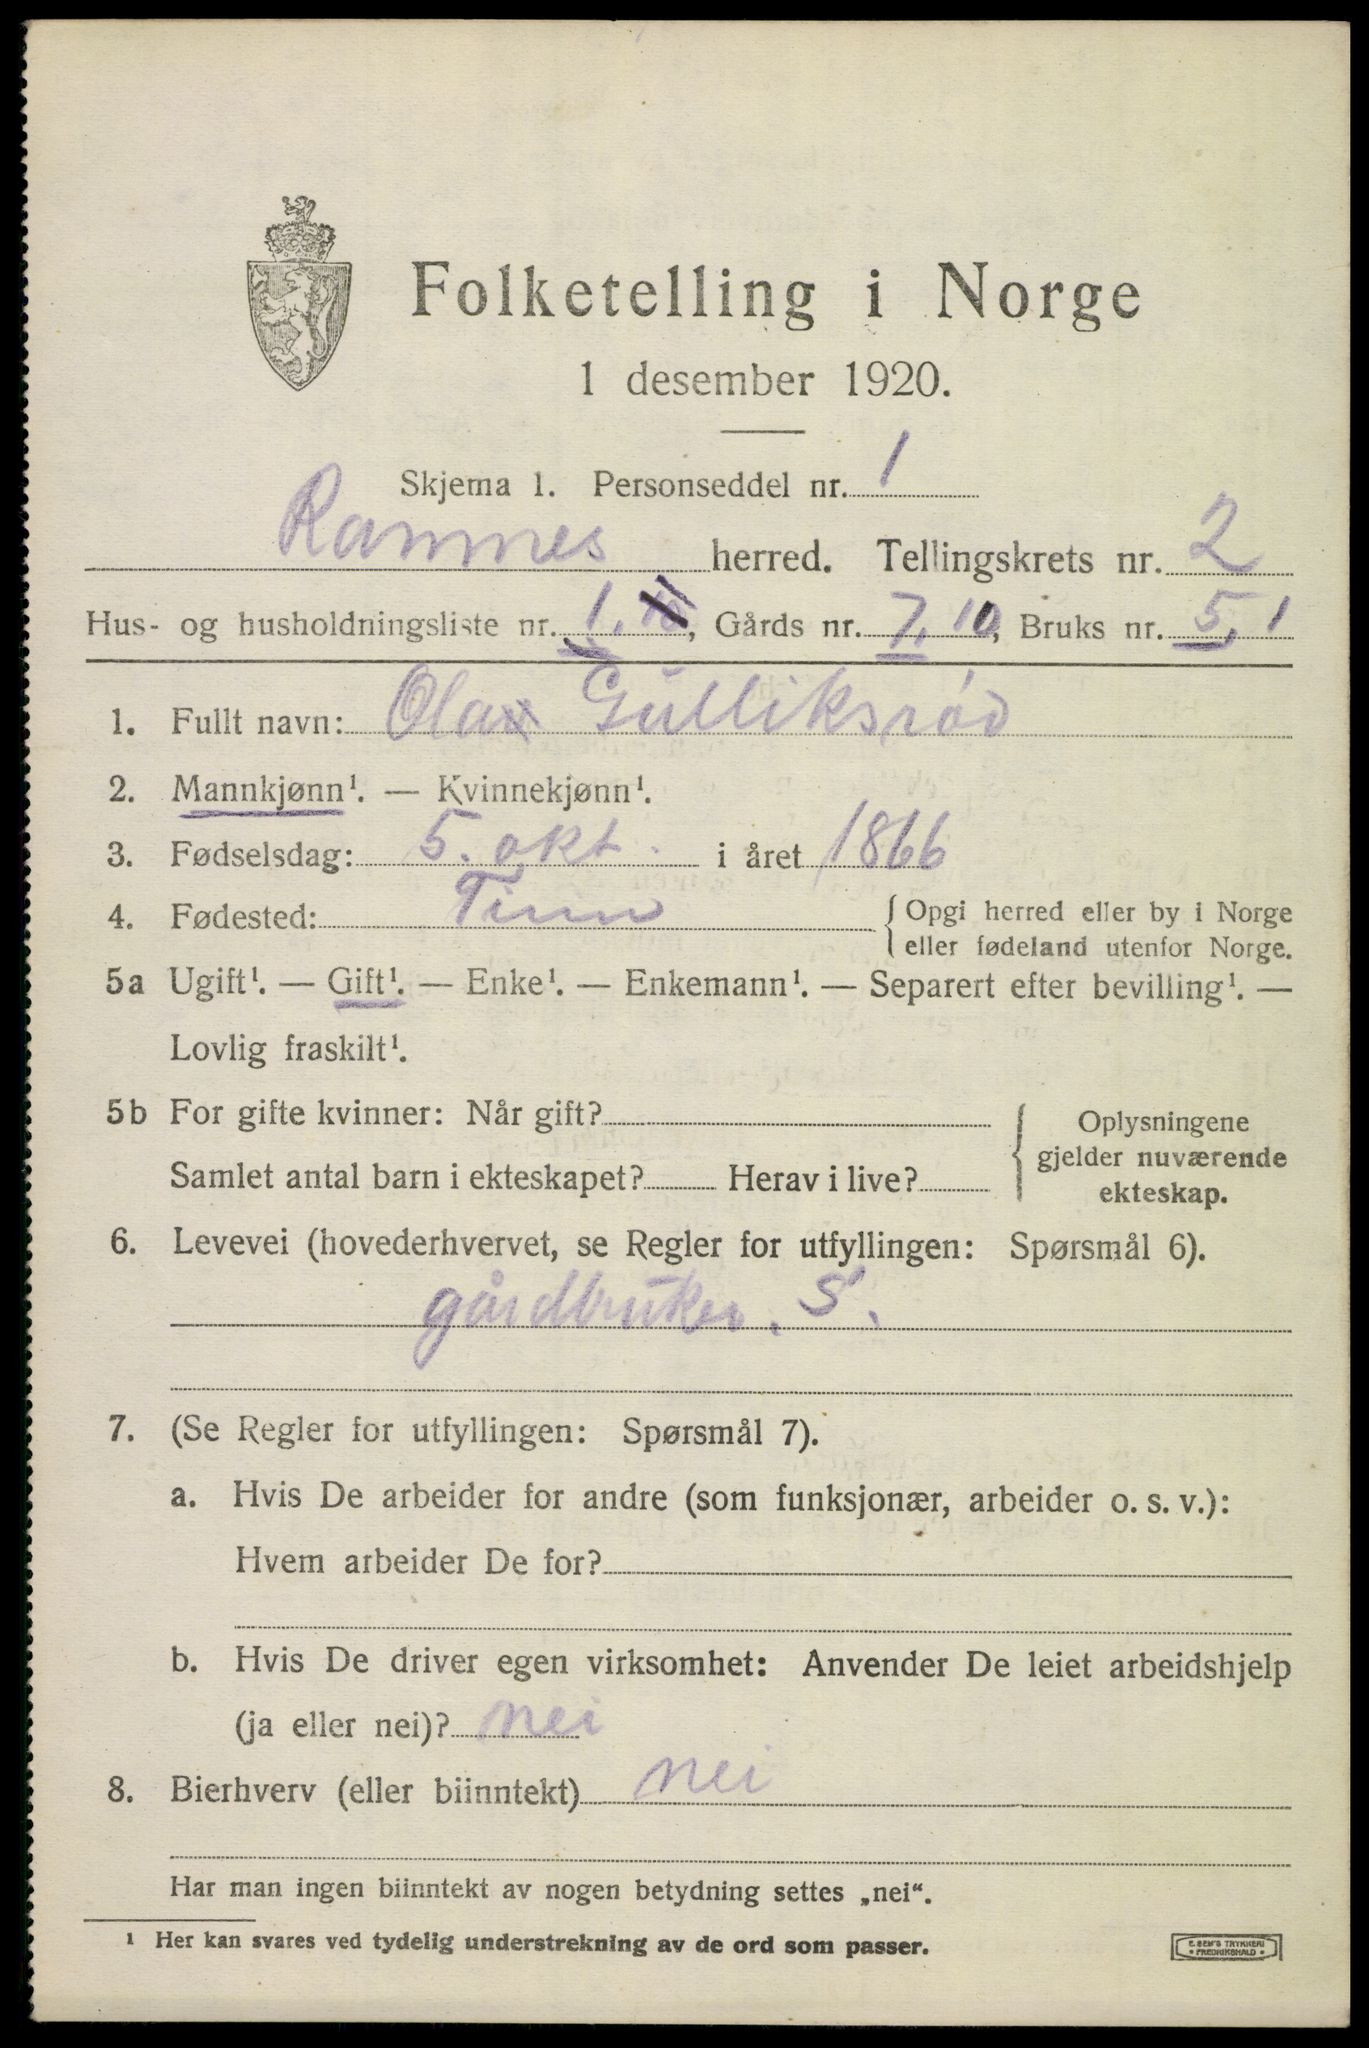 Folketelling i Norge
1 desember 1920.
Skjema 1. Personseddel nr. 1
Ramnes herred. Tellingskrets nr. 2
Hus- og husholdningsliste nr. 1, 10, Gårds nr. 7, 10, Bruks nr. 5, 1
1. Fullt navn: Olav Gulliksrød
2. Mannkjønn¹. — Kvinnekjønn¹.
3. Fødselsdag: 5. okt. i året 1866
4. Fødested: Tinn {Opgi herred eller by i Norge
eller fødeland utenfor Norge.
5a Ugift¹. — Gift¹. — Enke¹. — Enkemann¹. — Separert efter bevilling¹. —
Lovlig fraskilt¹.
5b For gifte kvinner: Når gift? {Oplysningene
gjelder nuværende
Samlet antal barn i ekteskapet? Herav i live?
ekteskap.
6. Levevei (hovederhvervet, se Regler for utfyllingen: Spørsmål 6).
gårdbruker. S.
7. (Se Regler for utfyllingen: Spørsmål 7).
a. Hvis De arbeider for andre (som funksjonær, arbeider o. s. v.):
Hvem arbeider De for?
b. Hvis De driver egen virksomhet: Anvender De leiet arbeidshjelp
(ja eller nei)? nei
8. Bierhverv (eller biinntekt) nei
Har man ingen biinntekt av nogen betydning settes „nei“.
¹ Her kan svares ved tydelig understrekning av de ord som passer.
E. SEM'S TRYKKERI
• FREDRIKSHALD •